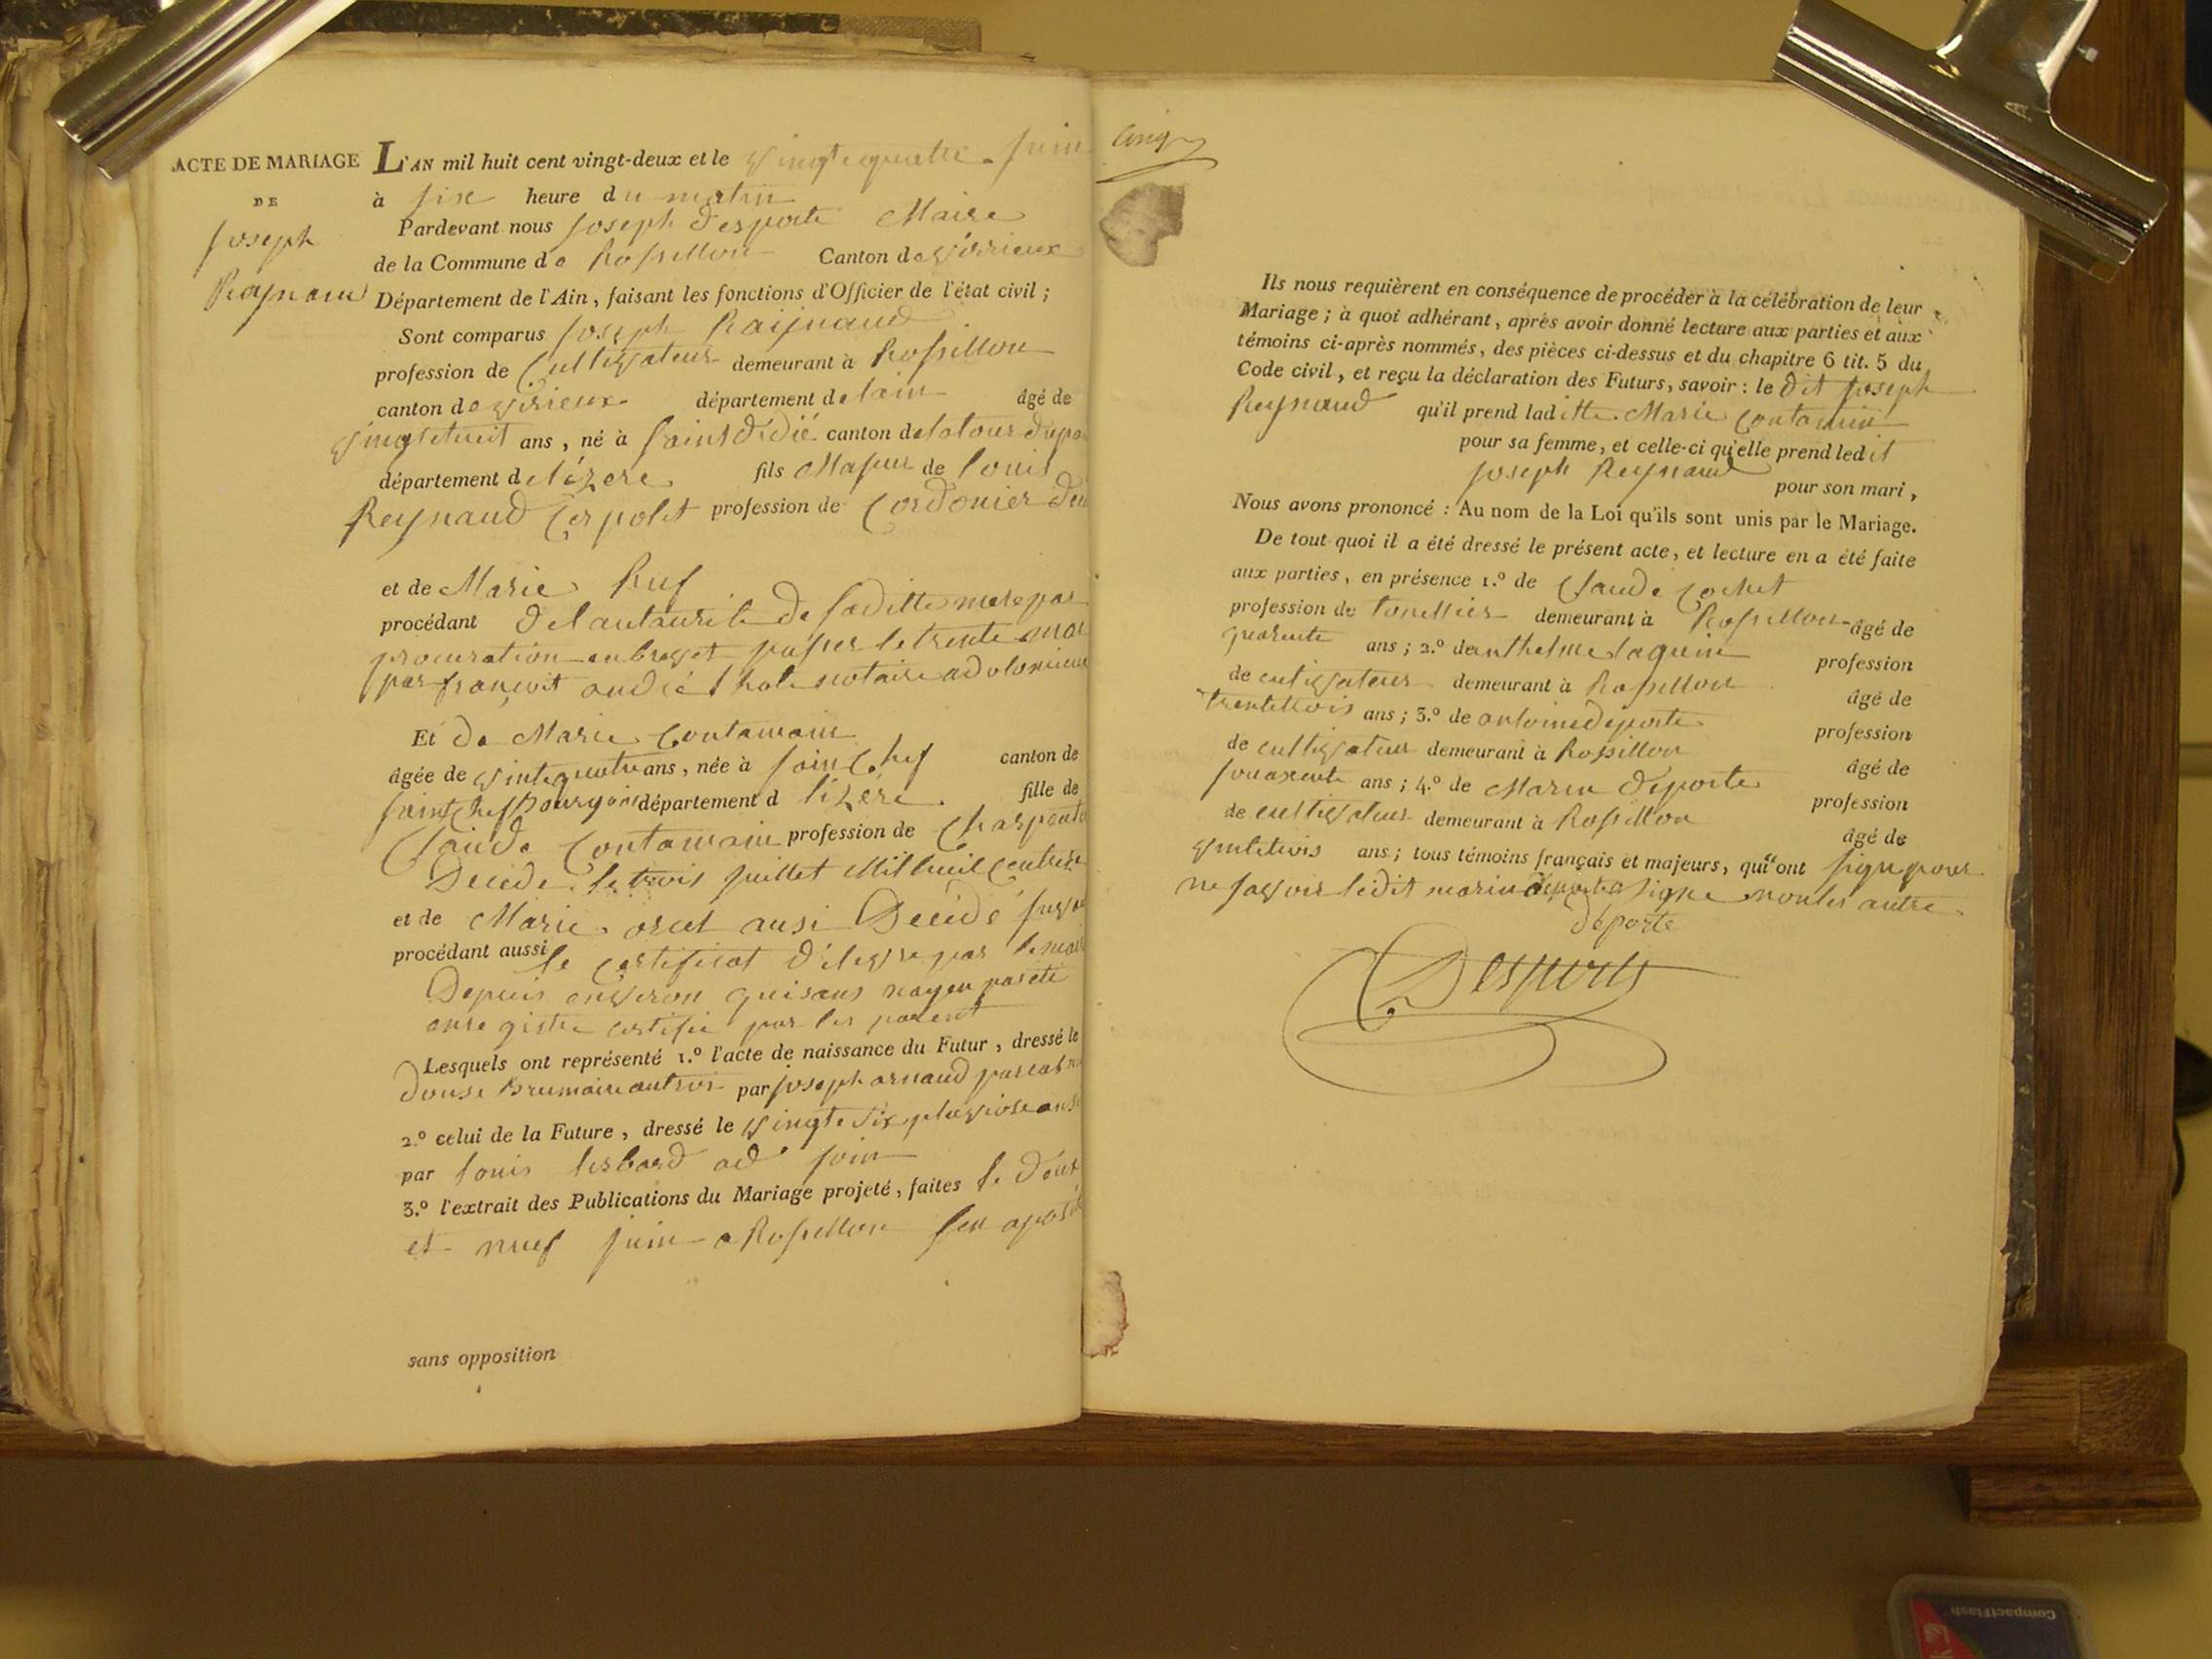 ACTE DE MARIAGE
DE
Joseph
Reynaud
L'AN mil huit cent vingt-deux et le vingtequatre juin
à six heure du matin
Pardevant nous Joseph Desporte Maire
de la Commune de Rossillon Canton de virieux
Département de l'Ain, faisant les fonctions d'Officier de l'état civil ;
Sont comparus Joseph Raijnaud
profession de Cultivateur demeurant à Rossillon
canton de virieux département de lain âgé de
vingtetuit ans, né à saint didié canton de latour dupa
département de lizere fils Majeur de louis
Reynaud profession de Cordonier
et de Marie Ruf
procédant de lautaurité de saditte mere par
procuration en brevet passer le trente mai
par françoit andré notaire a dolomieux
Et de Marie Contamain
âgée de vintequatre ans, née à sain Chef canton de
saint Chef Bourgoin département d lizére fille de
Claude Contamain profession de Charpente
Decede le trois juillet Mil huit
et de Marie orcel ausi Decidé
procédant aussi
le certificat délivre par le mair
Depuis environ quisans
enregistre certifié par les parent
Lesquels ont représenté 1.º l'acte de naissance du Futur, dressé le
douse Brumaire antroi par joseph arnaud
2.º celui de la Future, dressé le vingte six pluviose
par louis
3.º l'extrait des Publications du Mariage projeté, faites le deux
et nuef juin a Rossillon
sans opposition
Cinq
Ils nous requièrent en conséquence de procéder à la célébration de leur
Mariage ; à quoi adhérant, après avoir donné lecture aux parties et aux
témoins ci-après nommés, des pièces ci-dessus et du chapitre 6 tit. 5 du
Code civil, et reçu la déclaration des Futurs, savoir : le dit joseph
Reynaud qu'il prend laditte Marie Contamin
pour sa femme, et celle-ci qu'elle prend ledit
joseph Reynaud pour son mari,
Nous avons prononcé : Au nom de la Loi qu'ils sont unis par le Mariage.
De tout quoi il a été dressé le présent acte, et lecture en a été faite
aux parties, en présence 1.º de Claude Cochet
profession de tonellier demeurant à Rossillon âgé de
quarente ans ; 2.º de anthelme laguin profession
de cultivateur demeurant à Rossillon âgé de
trentetrois ans ; 3.º de antoine deporte profession
de cultivateur demeurant à Rossillon âgé de
souaxente ans ; 4.º de Marin déporte profession
de cultivateur demeurant à Rossillon âgé de
vintetrois ans ; tous témoins français et majeurs, qui ont signe pour
ne savoir ledit marin déporte a signe non les autre
déporte
Desporte
CompactFlash